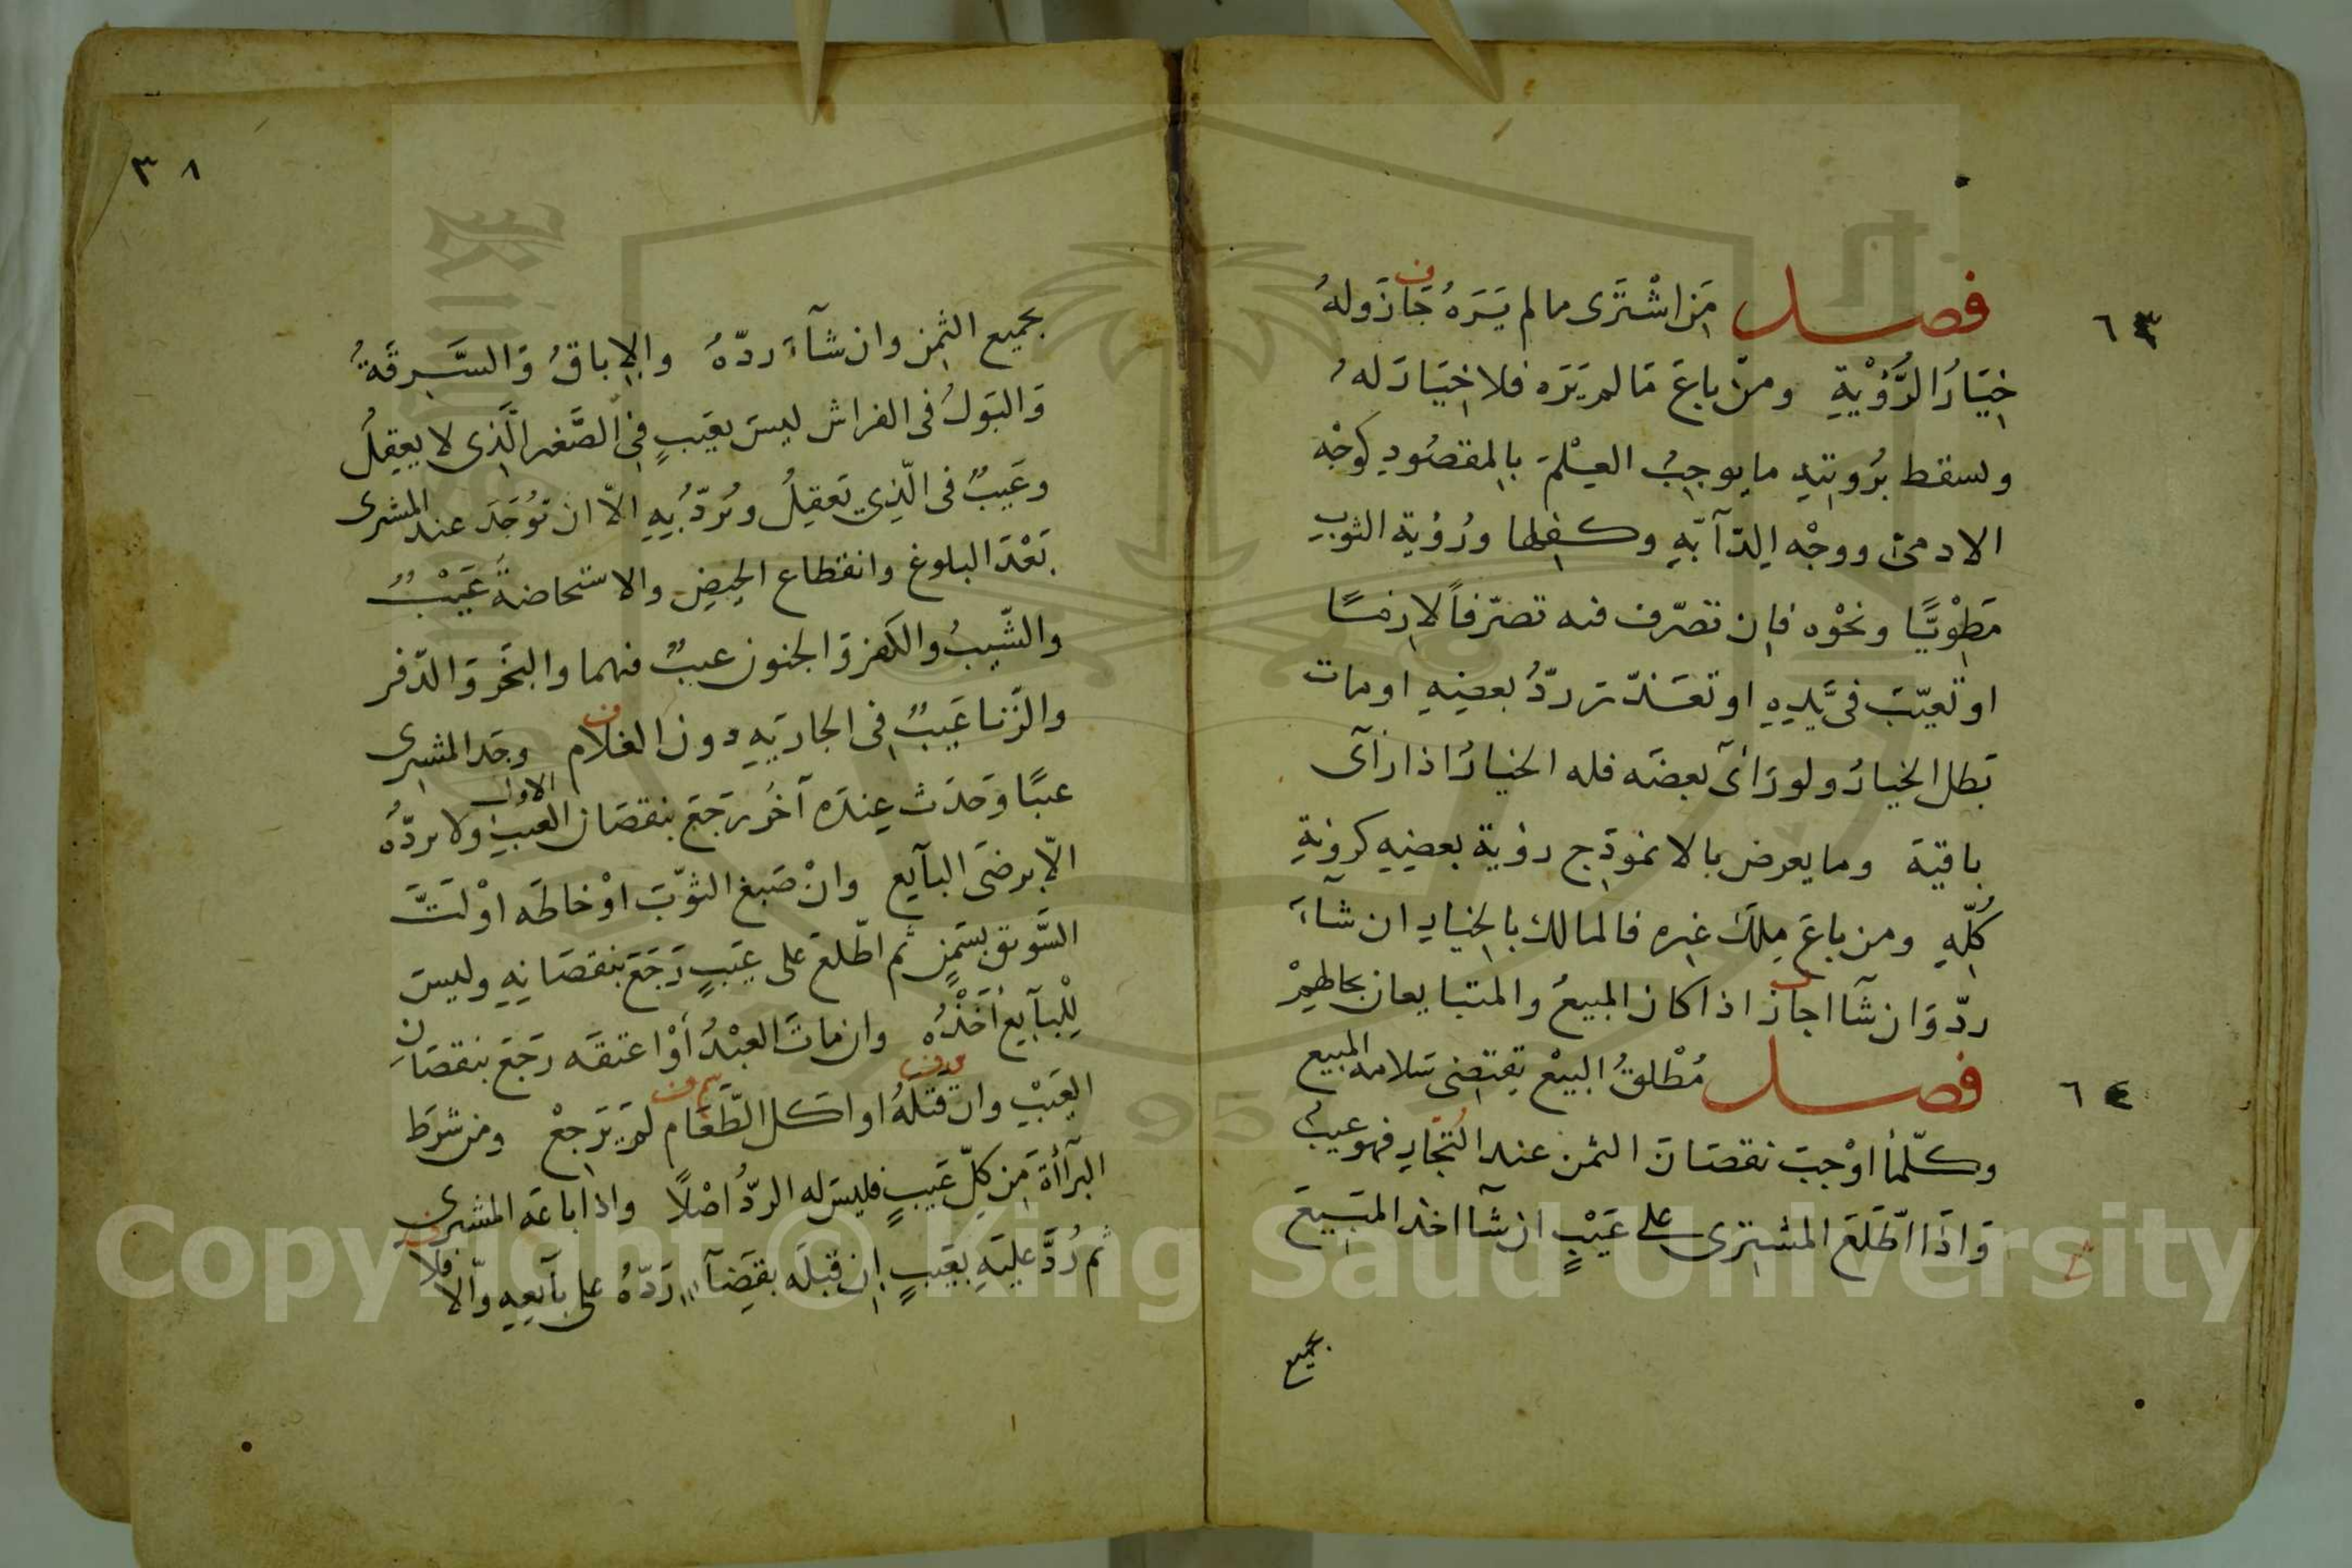 ٦٣
فصل مَن اشْتَرَى مالم يَرَهُ جَازَ ولهُ
خِيَارُ الرُّؤْيةِ ومن باعَ مَا لم يَرَه فلا خِيَارَ لهُ
وسقط برُويتهِ ما يوجبُ العِلْمَ بالمقصُودِ كوجْه
الادمىّ ووجْه الدّآبّةِ وكفلها ورُؤية الثوبِ
مَطْوِيًّا ونحْوه فاِن تصرّف فيه تصرّفاً لازمًا
او تَعيّبَ فى يَدِهِ او تعَذّر ردُّ بعضِهِ او مات
بَطل الخيارُ ولو رَأىَ بعضَه فله الخيارُ اذا رَآى
باقيَهَ وما يعرض بالانموذَج رؤية بعضِهِ كرؤيةِ
كُلّهِ ومن باعَ مِلكَ غيره فالمالك بالخيارِ ان شآءَ
ردّ وَان شآ اجازَ اذا كان المبيعُ والمتبايعان بحالهِمْ
٦٤
فصل مُطْلقُ البيْعِ يَقتضى سَلامة المبيع
وكلّما اوْجبَ نقصَانَ الثمن عند التُجّارِ فهو عيبٌ
وَاذَا اطّلَعَ المشترى على عَيْبٍ ان شآ اخذ المَبيعَ
بجميع
٣٨
بجميع الثمِن وان شآءَ ردّهُ والاِباقُ وَالسَّرِقَةُ
وَالبَولُ فى الفراش ليسَ بعَيبٍ فى الصَّغير الّذى لا يعقِلُ
وعَيبٌ فى الّذِي يَعقِلُ ويُردّ بِهِ الاّ ان يُوْجَدَ عند المشترى
بَعْدَ البلوغ وانقطاع الحيضِ والاستحاضةُ عَيْبٌ
والشّيبُ والكفر وَالجنون عيبٌ فيهما والبَخَر وَالدّفر
والزّنا عَيبٌ فى الجاريَهِ دون الغلام وجَد المشترى
عيبًا وَحَدَث عِندَه آخَرُ رَجَعَ بنقصَان العيب الاول ولا يردّهُ
الاّ برضَى البآيع وانْ صَبغ الثوّبَ اوْ خاطَه اوْ لَتَّ
السَّويق بسَمنٍ ثم اطّلعَ على عَيبٍ رَجَعَ بنقصَانِهِ وليسَ
لِلْبآيع أخَذْهُ وان ماتَ العبْدُ أوْ اعتقَه رَجَعَ بنقصَانِ
العَيَبْ وان قتلهُ او اكل الطّعَام لم يَرَجعْ ومن شرَط
البَرآأةَ مَن كلّ عَيبٍ فليسَ له الردُّ اصْلاً واذا باعَه المشترى
ثم رُدَّ عليَهِ بعَيبٍ اِن قبَلَه بقَضِآءٍ رَدّهُ على بآيعِهِ والاّ فلا